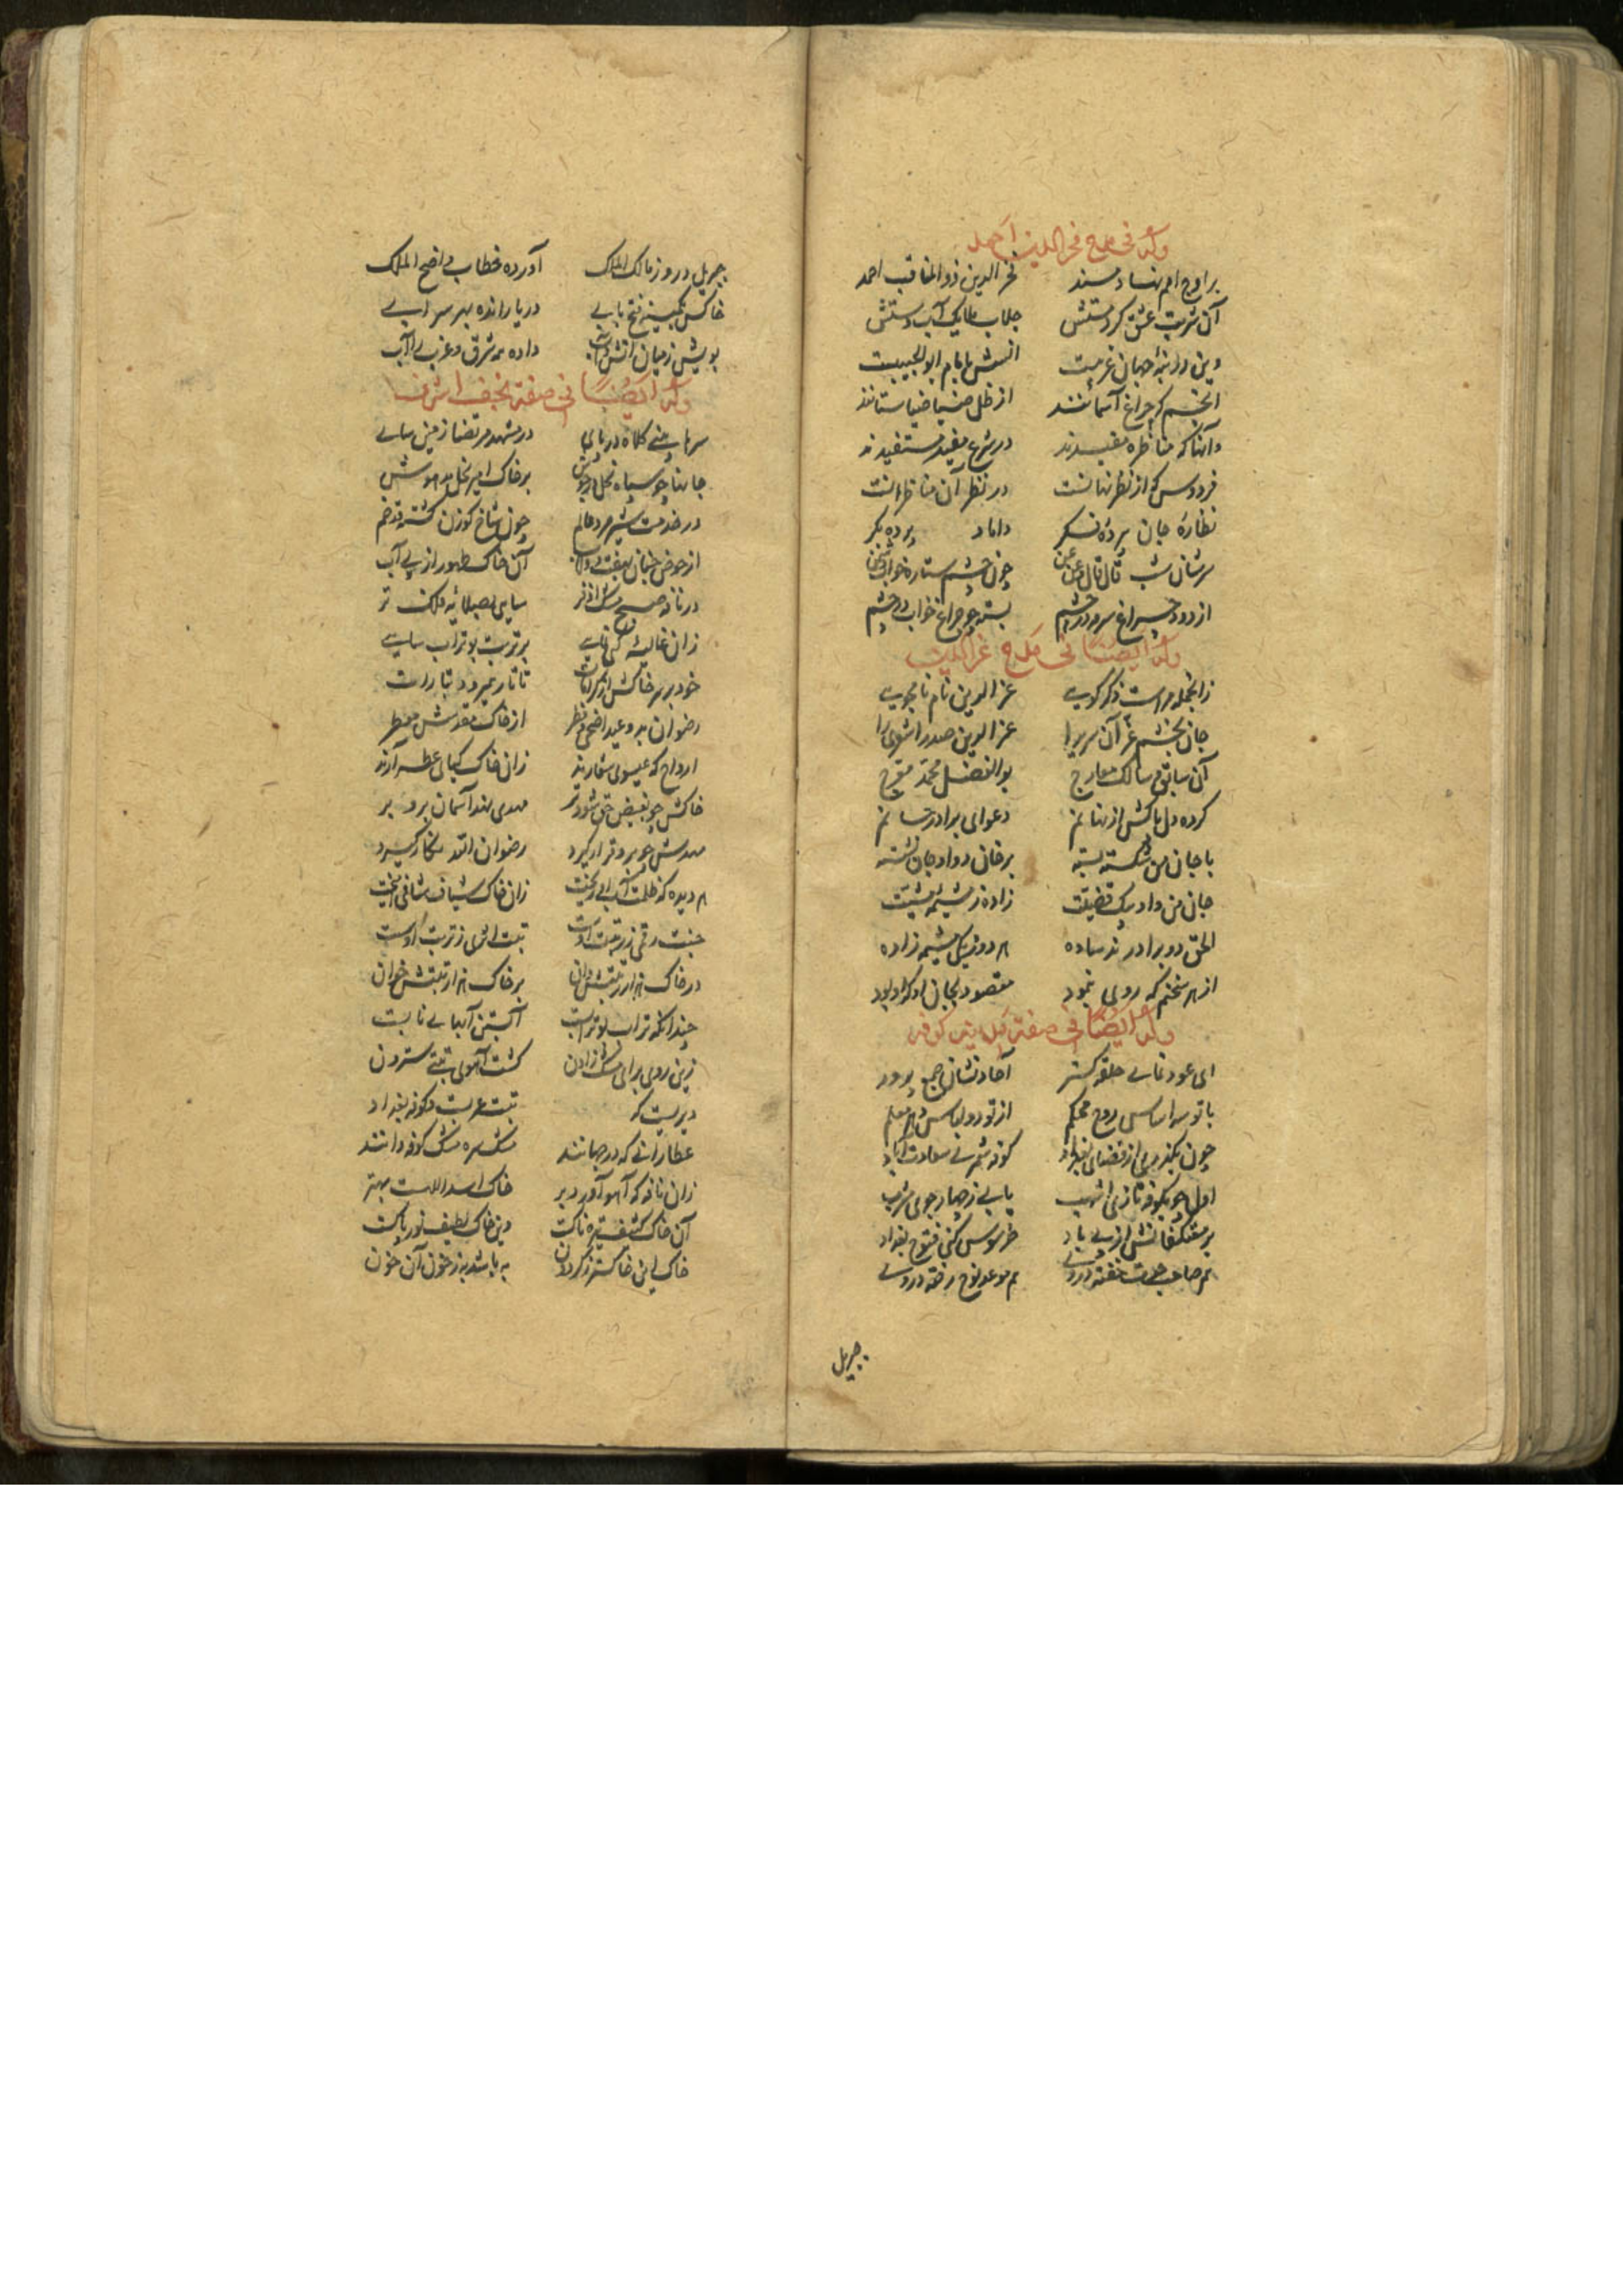 وله فی مدح فخرالدین احمد
بر اوج امم نهاد مسند فخر الدین ذو المناقب احمد
آن شربت عشق کرد مستش جلاب ملایک آب دستش
وین والبهٔ جهان غریبت انسش بامام ابو الحبیبت
انجم که چراغ آسمانند از ظل ضیا ضیا ستانند
وآنها که مناظره مفیدند در شرع مفید مستفیدند
فردوس که از نظر نهانست در نظر آن مناظرانست
نظارهٔ جان پردهٔ فکر داماد پرده بکر
سرشان شب قال قال عن عن چون چشم ستاره خواب دشمن
از دود چراغ سرمه در چشم بسته چو چراغ خواب در چشم
وله ایضا فی مدح عزالدین
زانجمله مراست ذکر گوی عز الدین نام نامجوی
جان بخشم عز آن سریرا عز الدین صدر اشعری را
آن سابق سالک معارج بوالفضل محمد معرج
کرده دل پاکش از نهانم دعوای برادر
با جان من شکسته بسته بر خان دواد جان نشسته
جان من واو بیک قضیت زاده ز مشیمه مشیت
الحق دو برادریم ساده هر دو ز یک مشیمه زاده
از هر سخنم که روی نمود مقصود بجان او که او بود
وله ایضا فی صفة مدینه کوفه
ای عود نمای حلقه گستر آحاد نشان جمع پرور
با تو سه اساس روح محکم از تو دو لباس شهر معلم
چون بگذری از فضای بغداد کوفه شمری سعادت آباد
اول چو بکوفه تازی اشهب یابی ز چهار جوی مشرب
بر معتکفانش از پی یاد طرسوس کنی فتوح بغداد
هم صاحب حلت خفته در وی هم موعد نوح رفته در وی
جبریل
جبریل در روز مالک الملک آورده خطاب واضح الملک
خاکش بکمینه فتح بابی دریا رانده بهر سرابی
بویش زمیان آتش و آب داده همه شرق و غرب را آب
وله ایضا فی صفة نجف اشرف
سرها بینی کلاه در پای در مشهد مرتضا زمین سای
جانها چو سپاه نحل در جوش بر خاک امیر نحل مدهوش
در خدمت شیر مرد عالم چون شاخ گوزن گشته قد خم
از حوض جنان بهفت دولاب آن خاک طهور از پی آب
در نافه صبح مشک اذفر سایی بصلایه فلک تر
زان غالیه بر تربت بوتراب سایی
خود بر سر خاکش از کرامات تاتار نمیرود بتارات
رضوان بدو عید اضحی و فطر از خاک مقدسش معطر
ارواح که عیسوی شعارند زان خاک کبای عطر آرند
خاکش چو بفیض حق شود تر مهدی نهد آسمان برو بر
مهدش چو برو قرار گیرد رضوان
هر دیده که ظلمت آب او ریخت زان خاک شیاف شافی آمیخت
جنت رقمی ز رتبت اوست تبت اثری ز تربت اوست
در خاک هزار رتبتش دان بر خاک هزار تبتش خوان
چندانکه تراب بوترابست آبستن آبهای نابست
زین روی برای مشک زادن گشت آهوی تبتی سترون
دیریست که تبت عربست و کوفه بغداد
عطارانی که در جهانند مشک سره مشک کوفه دانند
زان نافه که آهو آورد بر خاک اسد اللهست بهتر
آن خاک کثیف تیره ناکست وین خاک لطیف نور پاکست
خاک این خاکستر ز گردون به باشد به ز خون آن خون